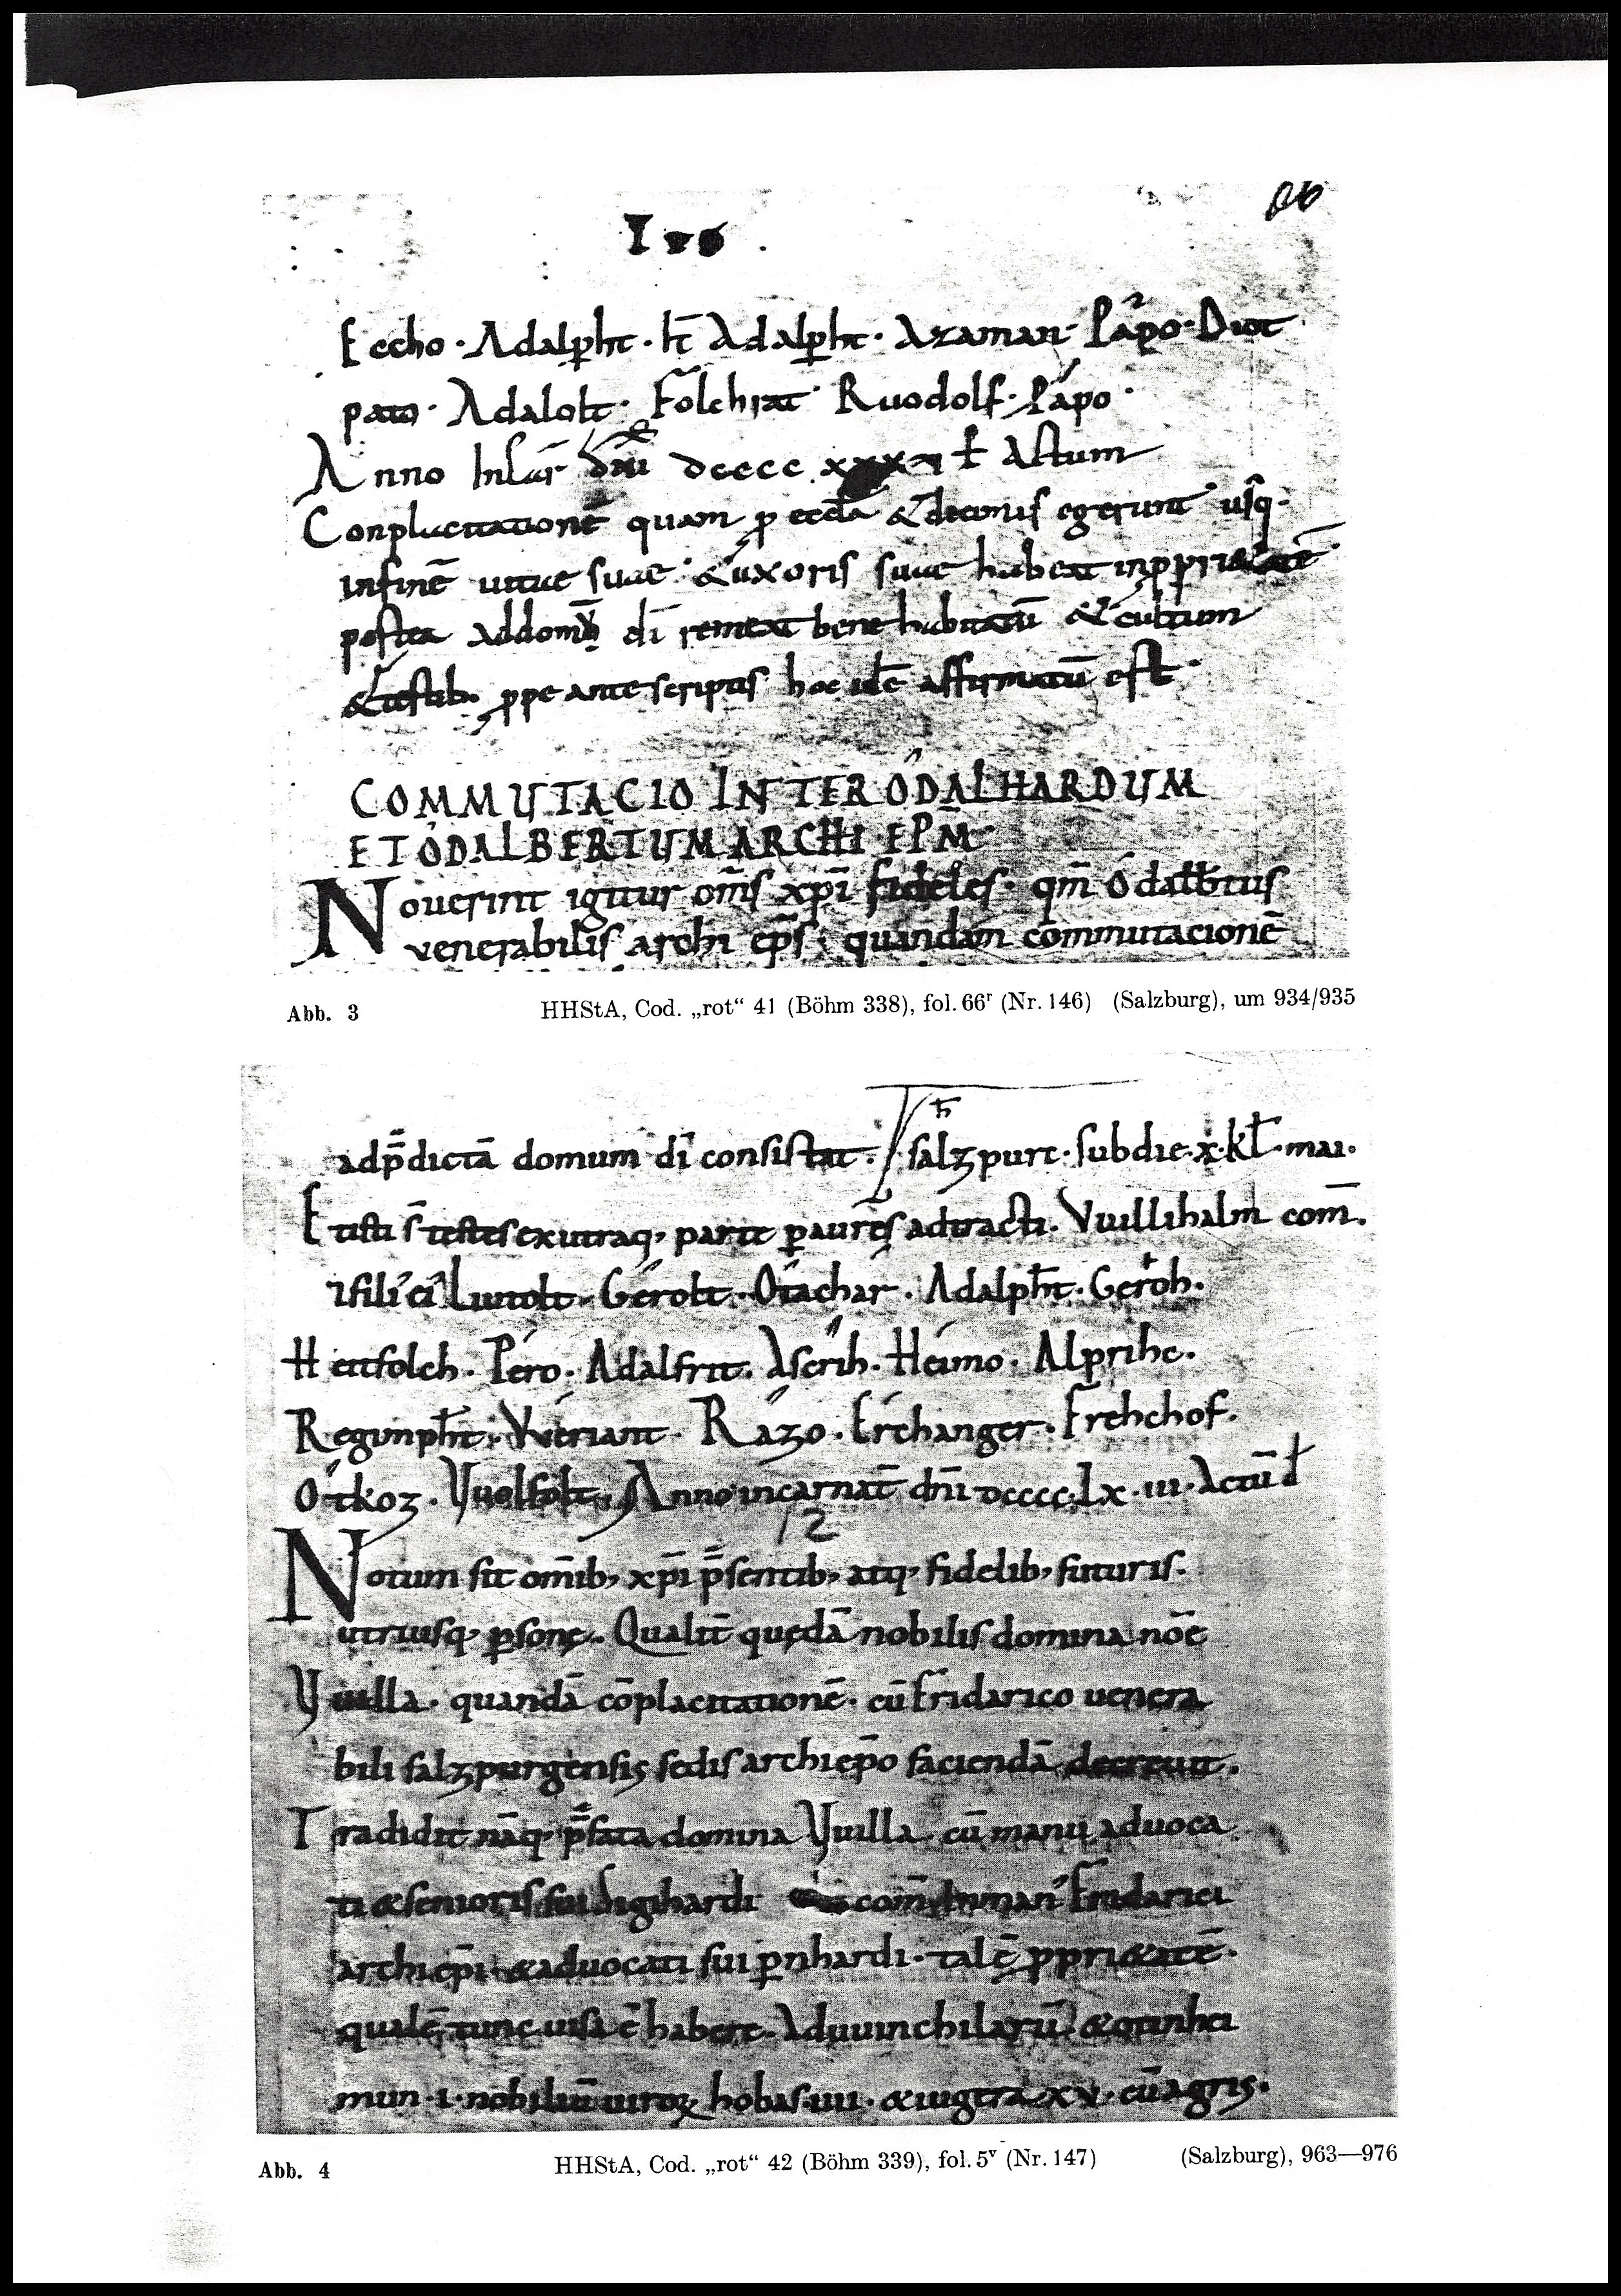 Eccho · Adalp̱ht · It̄ Adalp̱ht · Azaman · Pápo · Diot
pato · Adalolt · Folchrat · Ruodolf · Pápo ·
Anno Incar̄ dn̄i dcccc Actum
Conplacitationē quam p̱ eccła & decimis egerunt usq·
infinē uitae suae · & uxoris suae habeat inp̱priëtatē ·
postea addomū di̅ remeat bene habitatū & cultum
& testib; p̱pe ante scriptis hoc idē affirmatū est ·
COMMUTACIO INTER ÓDALHARDUM
ET ÓDALBERTUM ARCHI EPM̄
Nouerint igitur om̄s xpi̅ fideles · qm̄ Ódalb̄tus
venerabilis archi ep̄s · quandam commutacionē
Abb. 3 HHStA, Cod. „rot“ 41 (Böhm 338), fol. 66ʳ (Nr. 146) (Salzburg), um 934/935
adp̄dictā domum di̅ consistat · salzpurc · subdie · x · kł · mai ·
Et isti s̄ testes exutraq; parte p̱ aures adtracti · Vuillihalm com̄ ·
⁊ fili’ ei’ Liutolt · Gérolt · Otachar · Adalp̱ht · Geroh ·
Heitfolch · Péro · Adalfrit · Ascrih · Heimo · Alprihc ·
Reginp̱ht · Weriant · Rázo · Erchanger · Frehchof ·
Ótkoz · Vuolfolt · Anno incarnat̄ dn̄i dcccc · Lx · iii · Actū
12
Notum sit om̄ib; xpi̅ p̄sentib; atq; fidelib; futuris ·
utriusq; p̱sonę · Qualit̄ quędā nobilis domina nōe
Vuilla · quandā cōplacitationē · cū Fridarico uenera
bili salzpurgensis sedis archiep̄o faciendā decreuit ·
Tradidit nāq; p̄fata domina Vuilla cū manu aduoca
ti & senioris sui Sigihardi com̄ Inman’ Fridarici
archiep̄i · & aduocati sui p̱nhardi · talē p̱pri&atē ·
qualē tunc uisa ē habere · Aduuinchilarū & otinhei
mun · i · nobiliū uiroꝝ hobas · iiii · & iugera · xv · cū agris ·
Abb. 4 HHStA, Cod. „rot“ 42 (Böhm 339), fol. 5ᵛ (Nr. 147) (Salzburg), 963—976